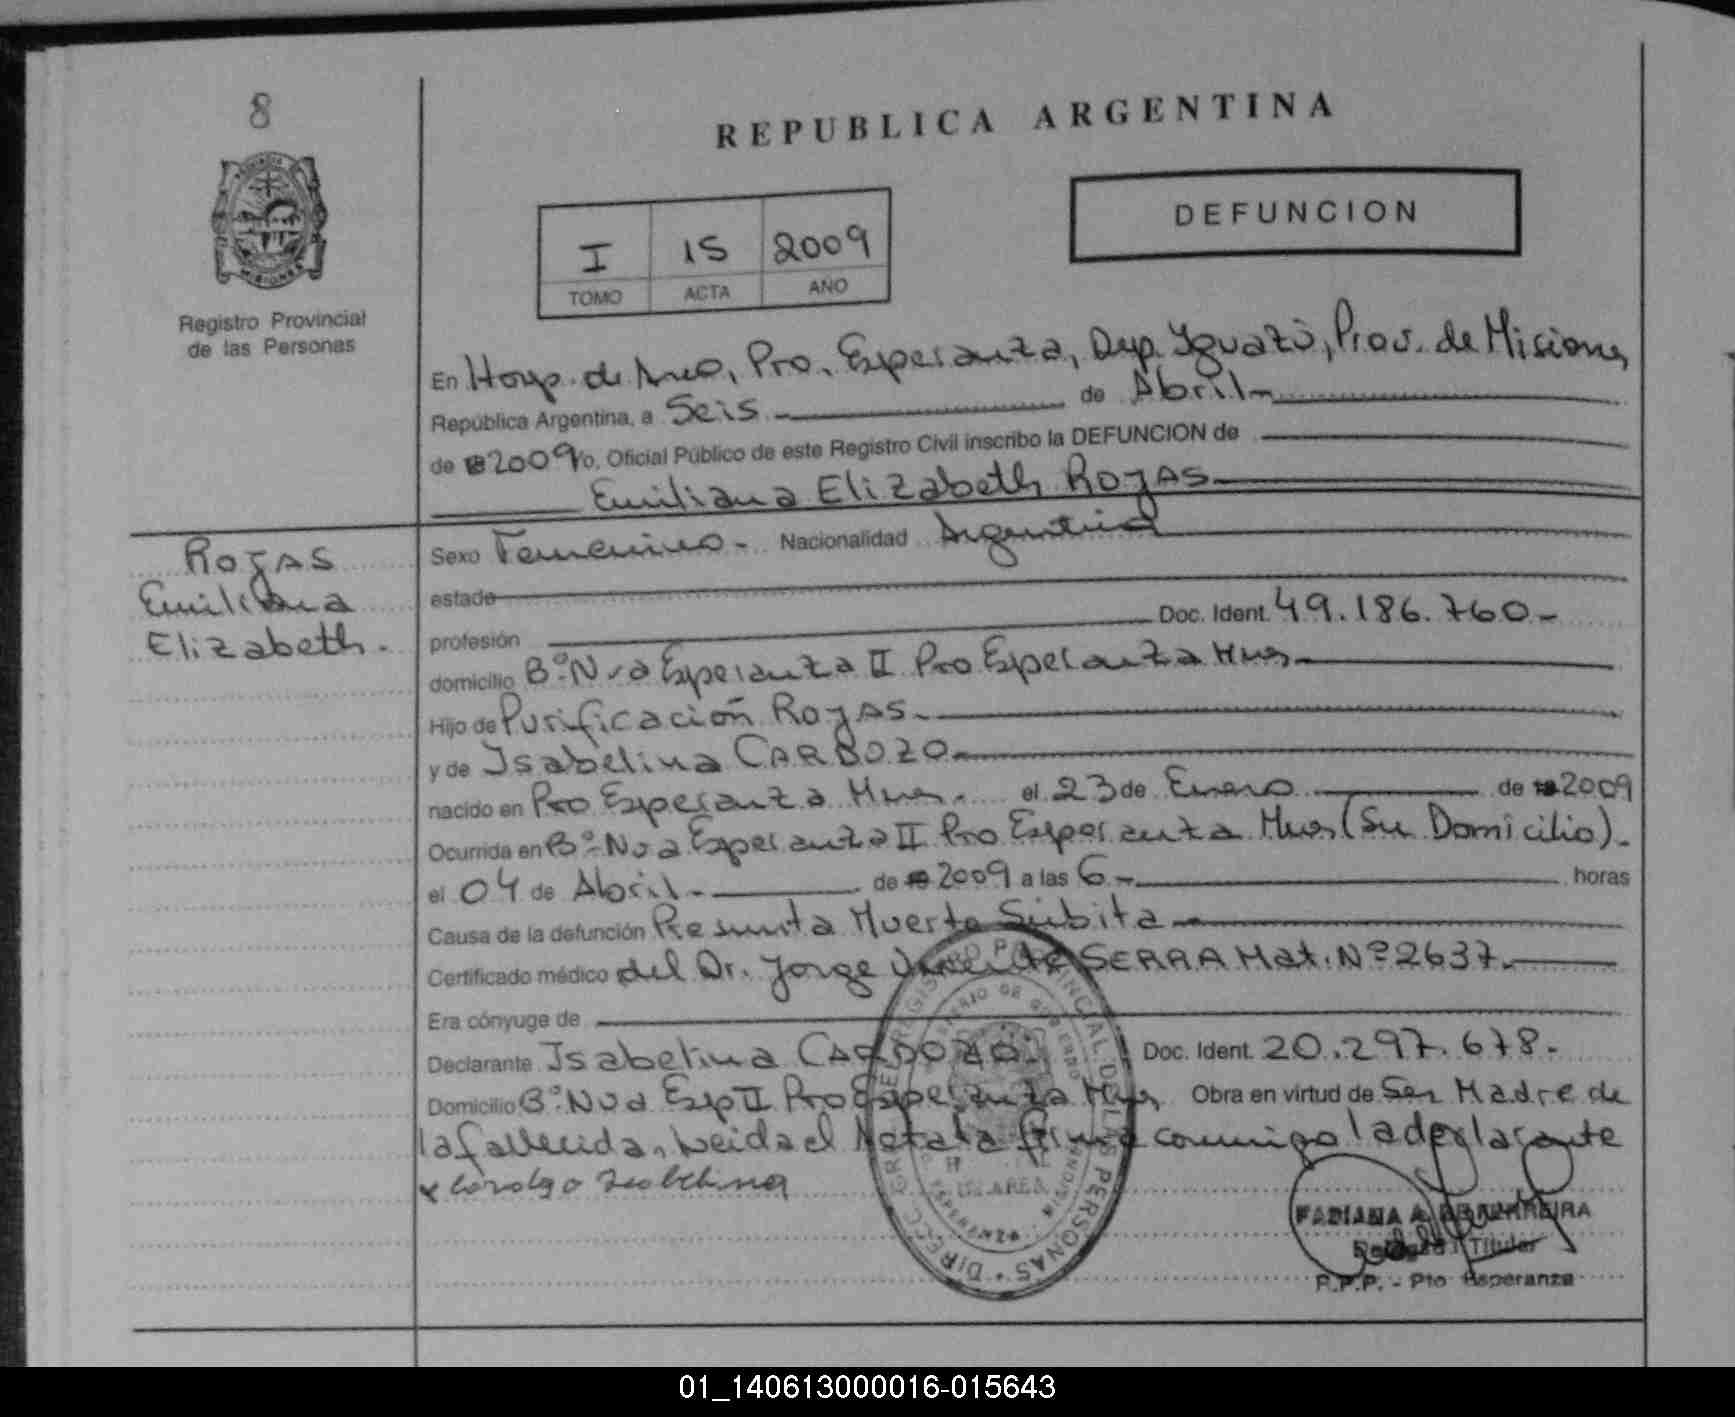 8
REPUBLICA ARGENTINA
DEFUNCION
I 15 2009
TOMO ACTA AÑO
MISIONES
Registro Provincial
de las Personas
En Hosp. de Area, Pto. Esperanza, Dep. Iguazú, Prov. de Misiones
República Argentina, a Seis - de Abril -
de 2009 Yo, Oficial Público de este Registro Civil inscribo la DEFUNCION de
Emiliana Elizabeth ROJAS
ROJAS
Emiliana
Elizabeth.
Sexo Femenino - Nacionalidad Argentina
estado
profesión Doc. Ident. 49.186.760 -
domicilio B° Nva Esperanza II Pto Esperanza Mnes
Hijo de Purificación ROJAS -
y de Isabelina CARDOZO -
nacido en Pto Esperanza Mnes. el 23 de Enero de 2009
Ocurrida en B° Nva Esperanza II Pto Esperanza Mnes (Su Domicilio).
el 04 de Abril - de 2009 a las 6 - horas
Causa de la defunción Presunta Muerte Súbita -
Certificado médico del Dr. Jorge Vicente SERRA Mat. N° 2637. -
Era cónyuge de
Declarante Isabelina CARDOZO. Doc. Ident. 20.297.678 -
Domicilio B° Nva Esp II Pto Esperanza Mnes Obra en virtud de Ser Madre de
la fallecida, Leida el Acta la firma conmigo la declarante
x Cardozo Isabelina
DIRECC. GRAL. DEL REGISTRO PROVINCIAL DE LAS PERSONAS
MINISTERIO DE GOBIERNO
FABIANA A. FERREIRA
Titular
R.P.P. - Pto Esperanza
01_140613000016-015643